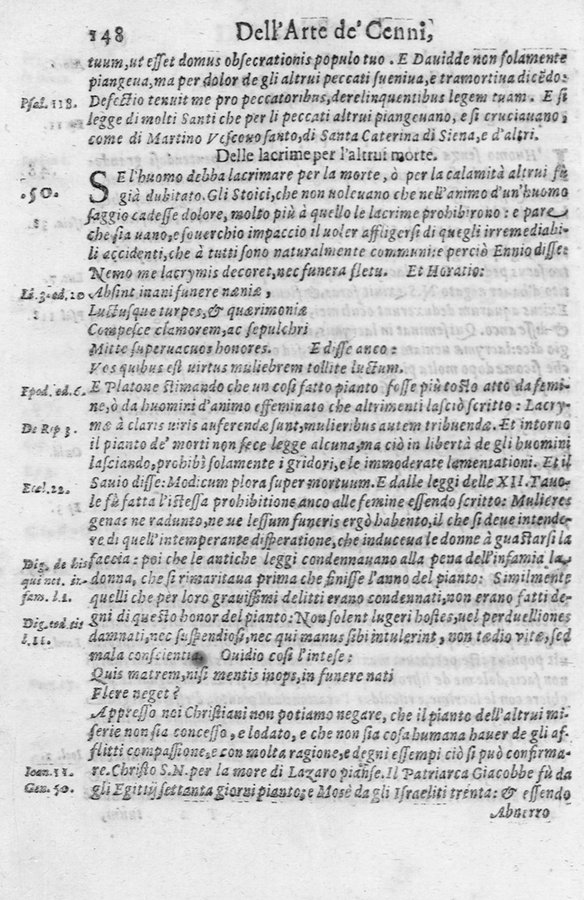 148 Dell'Arte de' Cenni,
tuum, ut esset domus obsecrationis populo tuo. E Davidde non solamente
piangeva, ma per dolor de gli altrui peccati sueniva, e tramortiva dicēdo:
Psal. 118. Defectio tenuit me pro peccatoribus, derelinquentibus legem tuam. E si
legge di molti Santi che per li peccati altrui piangevano, e si cruciavano,
come di Martino Vescovo santo, di Santa Caterina di Siena, e d'altri.
Delle lacrime per l'altrui morte.
SE l'huomo debba lacrimare per la morte, ò per la calamità altrui fù
.50. già dubitato. Gli Stoici, che non volevano che nell'animo d'un'huomo
saggio cadesse dolore, molto più à quello le lacrime prohibirono: e pare
che sia vano, e soverchio impaccio il voler affligersi di quegli irremediabi-
li accidenti, che à tutti sono naturalmente communi: e perciò Ennio disse:
Nemo me lacrymis decoret, nec funera fletu. Et Horatio:
Li. 3. od. 20 Absint inani funere næniæ,
Luctusque turpes, & quærimoniæ
Compesce clamorem, ac sepulchri
Mitte supervacuos honores. E disse anco:
Vos quibus est virtus muliebrem tollite luctum.
Epod. od. 6. E Platone stimando che un così fatto pianto fosse più tosto atto da femi-
ne, ò da huomini d'animo effeminato che altrimenti lasciò scritto: Lacry-
De Rip 3. mæ à claris viris auferendæ sunt, mulieribus autem tribuendæ. Et intorno
il pianto de' morti non fece legge alcuna, ma ciò in libertà de gli huomini
lasciando, prohibì solamente i gridori, e le immoderate lamentationi. Et il
Eccl. 22. Savio disse: Modicum plora super mortuum. E dalle leggi delle XII. Tavo-
le fù fatta l'istessa prohibitione anco alle femine essendo scritto: Mulieres
genas ne radunto, ne ve lessum funeris ergò habento, il che si deve intende-
re di quell'intemperante disperatione, che induceva le donne à guastarsi la
Dig. de his faccia: poi che le antiche leggi condennavano alla pena dell'infamia la
qui not. in- donna, che si rimaritava prima che finisse l'anno del pianto: Similmente
fam. l. 1. quelli che per loro gravissimi delitti erano condennati, non erano fatti de-
Dig. eod. tit gni di questo honor del pianto: Non solent lugeri hostes, vel perduelliones
l. 11. damnati, nec suspendiosi, nec qui manus sibi intulerint, non tædio vitæ, sed
mala conscientia Ovidio così l'intese:
Quis matrem, nisi mentis inops, in funere nati
Flere neget?
Appresso noi Christiani non potiamo negare, che il pianto dell'altrui mi-
serie non sia concesso, e lodato, e che non sia cosa humana haver de gli af-
flitti compassione, e con molta ragione, e degni essempi ciò si può confirma-
Ioan. 11. re. Christo S.N. per la more di Lazaro pianse. Il Patriarca Giacobbe fù da
Gen. 50. gli Egittij settanta giorni pianto; e Mosè da gli Israeliti trenta: & essendo
Abnerro